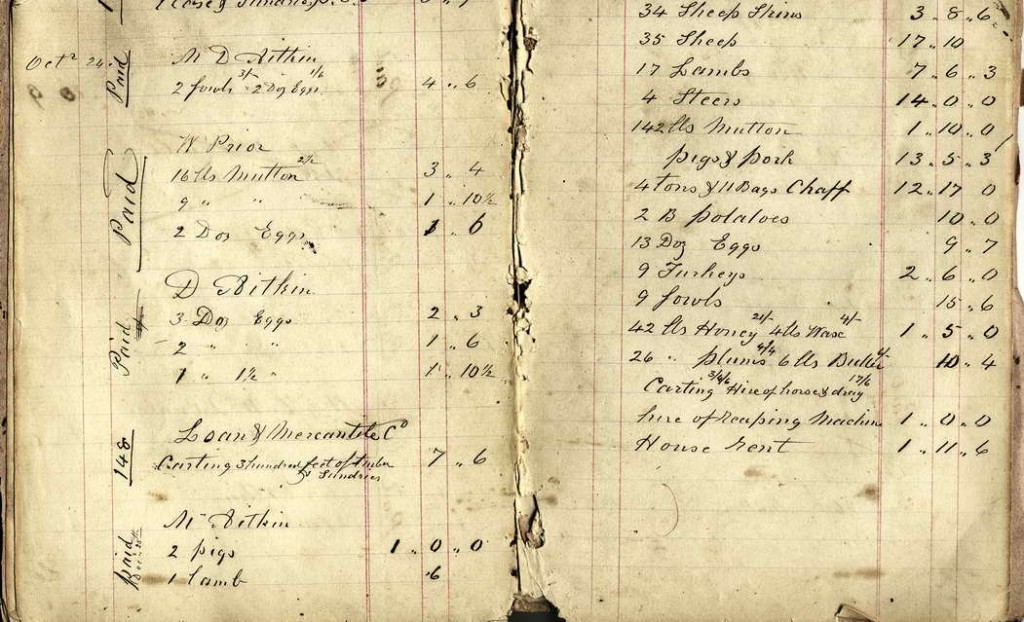 Oct 24
Paid
M D Aitkin
2 fowls 3/ 2 Doz Eggs 1/6 4 .. 6
Paid
W Prior
16 lbs Mutton 2½ 3 .. 4
9 " " 1 .. 10½
2 Doz Eggs 1 .. 6
Paid
D Aitkin
3 Doz Eggs 2 .. 3
2 " " 1 .. 6
1 " 1½ " 1 .. 10½
148
Loan & Mercantile Co
Carting 3 hundred feet of timber 7 .. 6
& Sundries
Paid
M Aitkin
2 pigs 1 .. 0 .. 0
1 Lamb 6
34 Sheep Skins 3 .. 8 .. 6
35 Sheep 17 .. 10
17 Lambs 7 .. 6 .. 3
4 Steers 14 .. 0 .. 0
142 lbs Mutton 1 .. 10 .. 0
pigs & pork 13 .. 5 .. 3
4 tons & 11 Bags Chaff 12 .. 17 0
2 B potatoes 10 .. 0
13 Doz Eggs 9 .. 7
9 Turkeys 2 .. 6 .. 0
9 fowls 15 .. 6
42 lbs Honey 21/- 4 lbs Wax 4/- 1 .. 5 .. 0
26 " plums 4/4 6 lbs Butter 10 .. 4
Carting Hire of horse & dray 17/6
hire of Reaping Machine 1 .. 0 .. 0
House rent 1 .. 11 .. 6